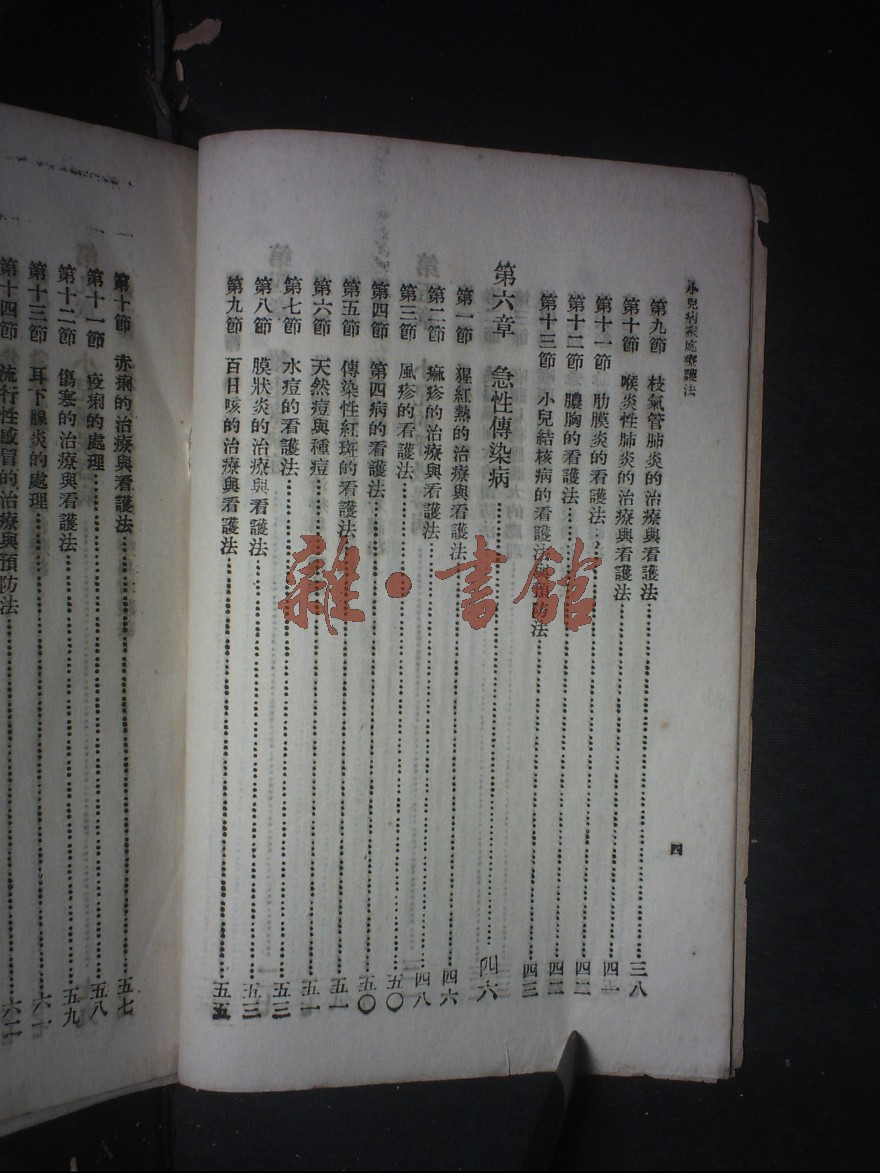 小兒病家庭療護法
四
第九節 枝氣管肺炎的治療與看護法 三八
第十節 喉炎性肺炎的治療與看護法 四一
第十一節 肋膜炎的看護法 四二
第十二節 膿胸的看護法 四二
第十三節 小兒結核病的看護法與預防法 四三
第六章 急性傳染病 四六
第一節 猩紅熱的治療與看護法 四六
第二節 痲疹的治療與看護法 四八
第三節 風疹的看護法 五〇
第四節 第四病的看護法 五〇
第五節 傳染性紅斑的看護法 五一
第六節 天然痘與種痘 五一
第七節 水痘的看護法 五三
第八節 膜狀炎的治療與看護法 五三
第九節 百日咳的治療與看護法 五五
第十節 赤痢的治療與看護法 五七
第十一節 疫痢的處理 五八
第十二節 傷寒的治療與看護法 五九
第十三節 耳下腺炎的處理 六一
第十四節 流行性感冒的治療與預防法 六二
雜·書館